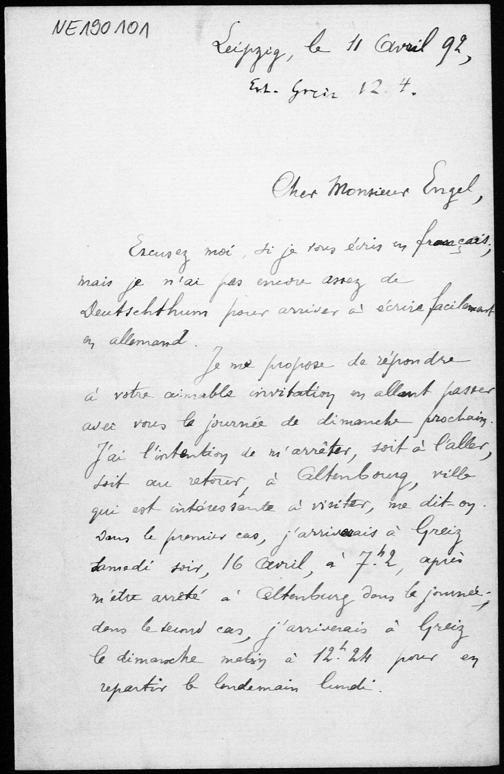 NE190101
Leipzig, le 11 avril 92,
Ert. Greiz 12.4.
Cher Monsieur Engel,
Excusez moi, si je vous écris en français;
mais je n'ai pas encore assez de
Deutschthum pour arriver à écrire facilement
en allemand.
Je me propose de répondre
à votre aimable invitation en allant passer
avec vous la journée de dimanche prochain.
J'ai l'intention de m'arrêter, soit à l'aller,
soit au retour, à Altenbourg, ville
qui est intéressante à visiter, me dit-on.
Dans le premier cas, j'arriverais à Greiz
samedi soir, 16 avril, à 7.h2, après
m'être arrêté à Altenburg dans la journée;
dans le second cas, j'arriverais à Greiz
le dimanche matin à 12.h24 pour en
repartir le lendemain lundi.